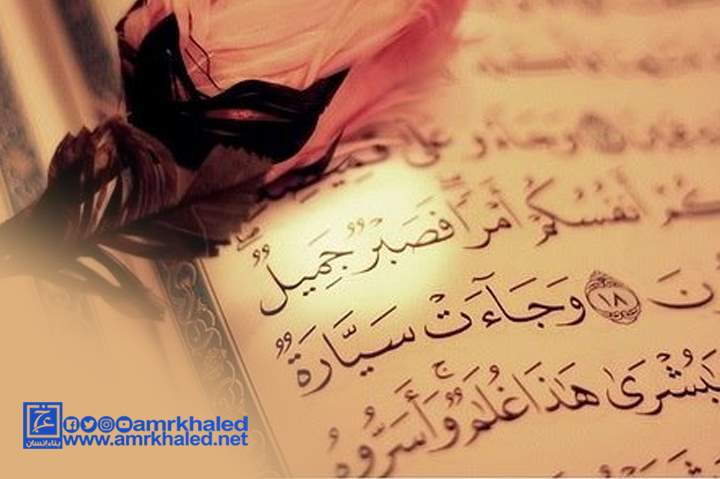 وجاءو على قميصه
كم أنفسكم أمرًا فصبر جميل
ون ١٨ وجاءت سيارة
يبشرى هذا غلم وأسروه
خالد
بناء إنسان
amrkhaled
www.amrkhaled.net